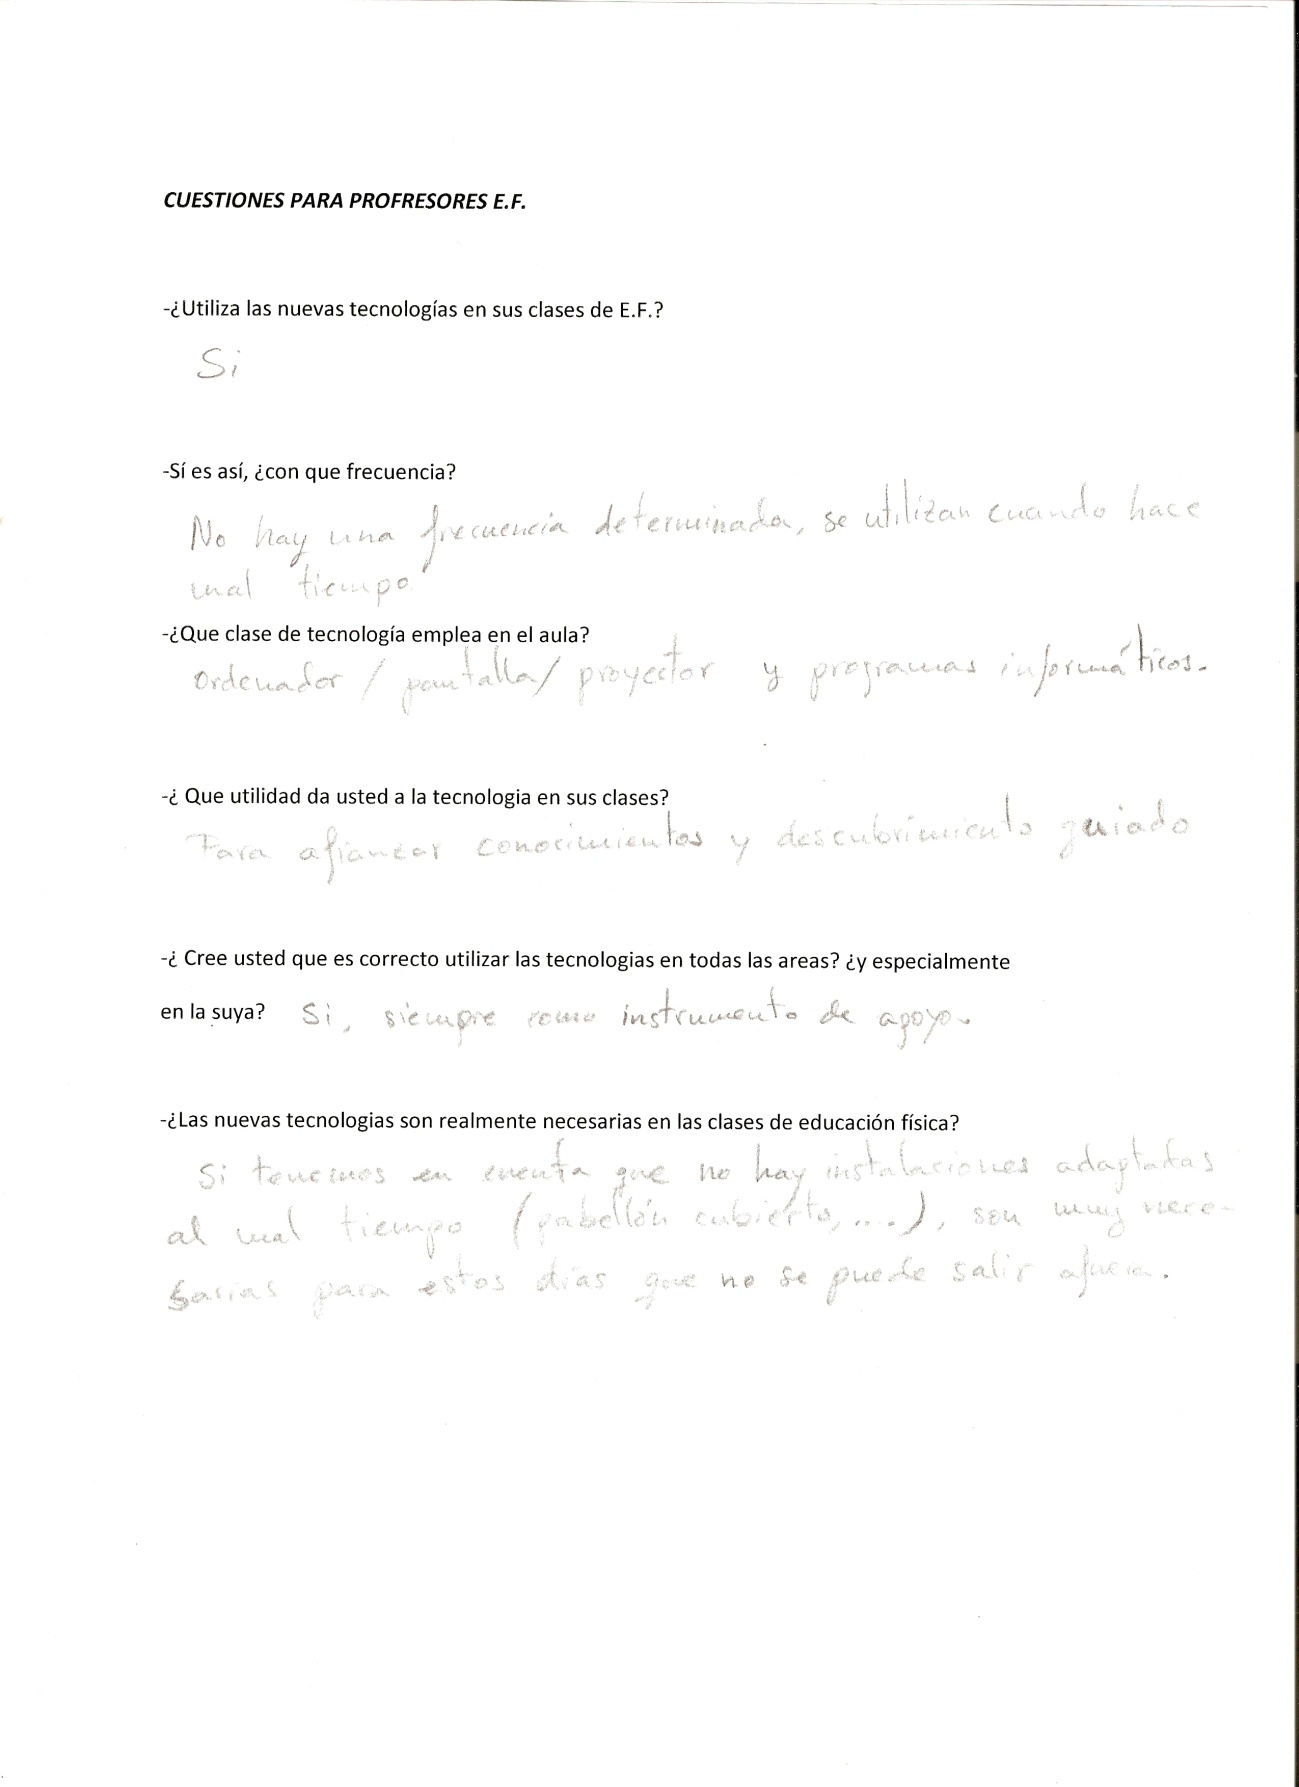 CUESTIONES PARA PROFRESORES E.F.
-¿Utiliza las nuevas tecnologías en sus clases de E.F.?
Si
-Sí es así, ¿con que frecuencia?
No hay una frecuencia determinada, se utilizan cuando hace
mal tiempo
-¿Que clase de tecnología emplea en el aula?
Ordenador / pantalla / proyector y programas informáticos.
-¿ Que utilidad da usted a la tecnologia en sus clases?
Para afianzar conocimientos y descubrimiento guiado
-¿ Cree usted que es correcto utilizar las tecnologias en todas las areas? ¿y especialmente
en la suya? Si, siempre como instrumento de apoyo.
-¿Las nuevas tecnologias son realmente necesarias en las clases de educación física?
Si tenemos en cuenta que no hay instalaciones adaptadas
al mal tiempo (pabellón cubierto, ....), son muy nece-
sarias para estos días que no se puede salir afuera.